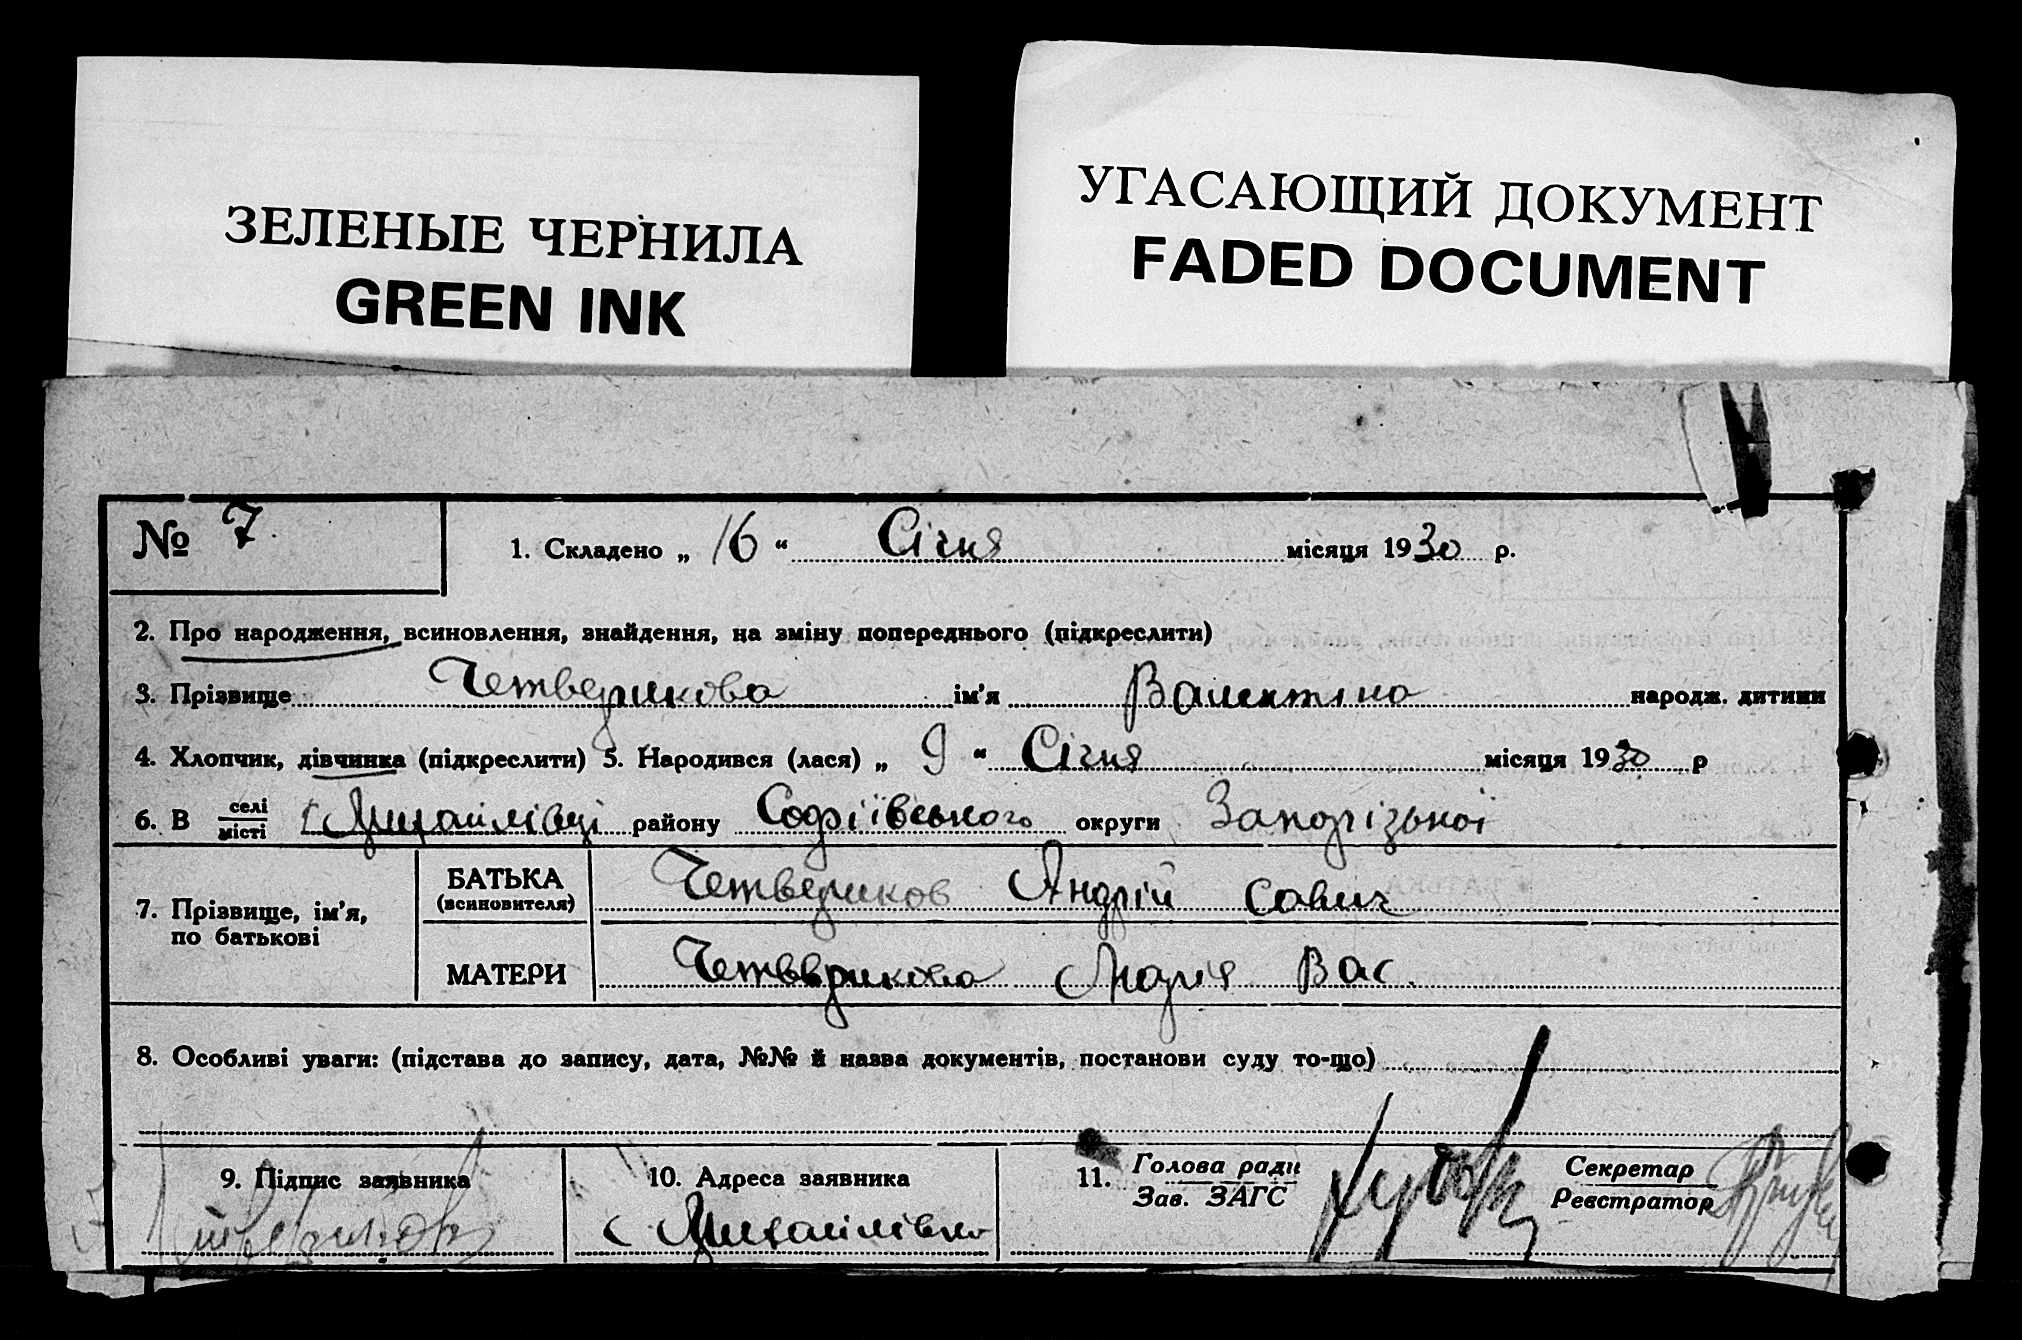 ЗЕЛЕНЫЕ ЧЕРНИЛА
GREEN INK
УГАСАЮЩИЙ ДОКУМЕНТ
FADED DOCUMENT
№ 7
1. Складено „ 16 “ Січня місяця 1930 р.
2. Про народження, всиновлення, знайдення, на зміну попереднього (підкреслити)
3. Прізвище Четверикова ім'я Валентина народж. дитини
4. Хлопчик, дівчинка (підкреслити) 5. Народився (лася) „ 9 “ Січня місяця 1930 р
6. В селі місті с Михайлівці району Софіївського округи Запорізької
7. Прізвище, ім'я, по батькові
БАТЬКА (всиновителя) Четвериков Андрій Савич
МАТЕРИ Четверикова Марія Вас.
8. Особливі уваги: (підстава до запису, дата, №№ й назва документів, постанови суду то-що)
9. Підпис заявника Четвериков
10. Адреса заявника
с Михайлівка
11. Голова ради Зав. ЗАГС
Секретар Реєстратор